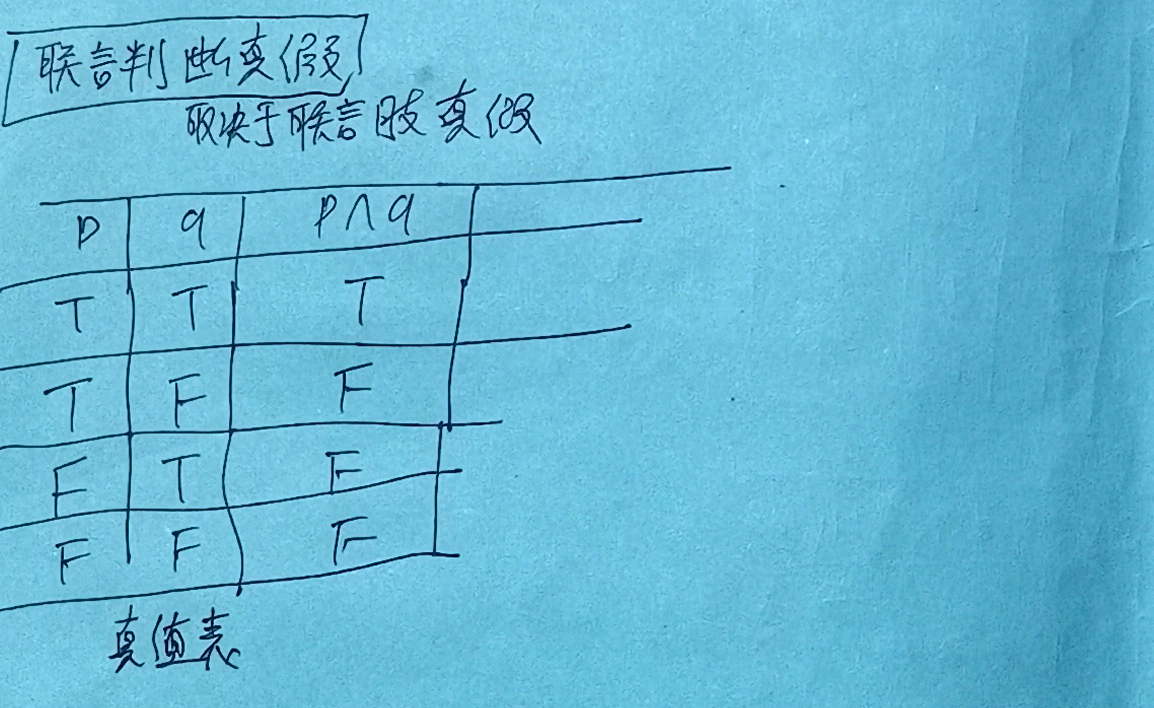 联言判断真假
取决于联言肢真假
P q P∧q
T T T
T F F
F T F
F F F
真值表